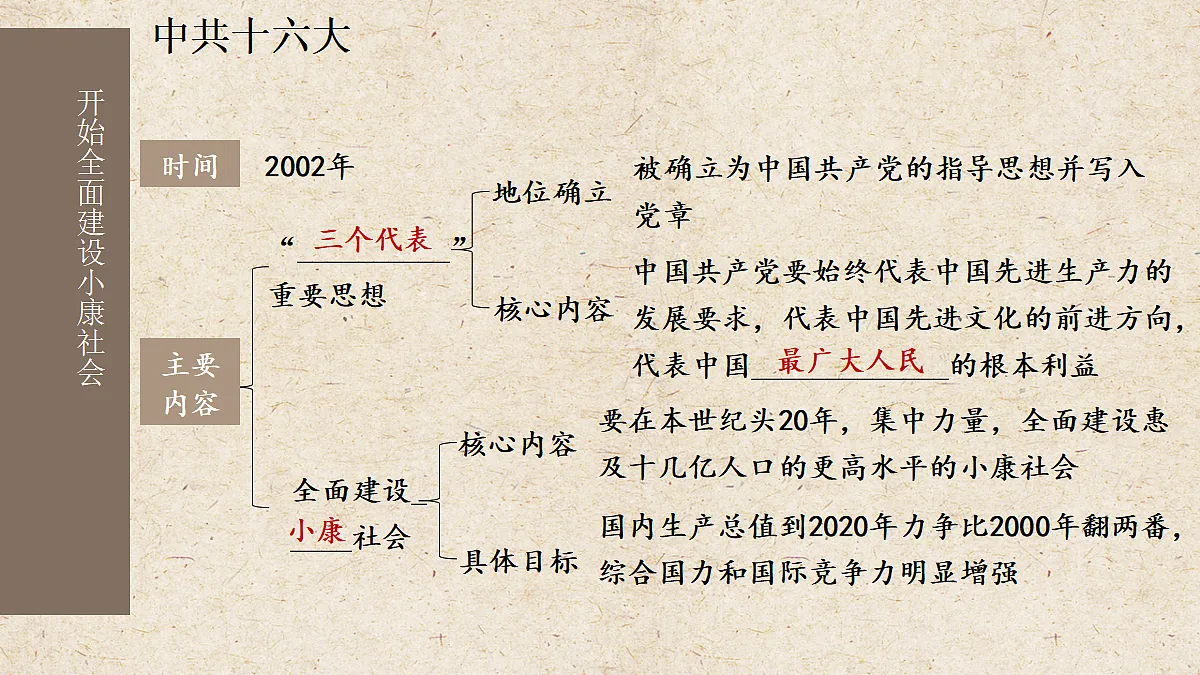 中共十六大
开始全面建设小康社会
时间
2002年
主要
内容
“三个代表”
重要思想
地位确立
被确立为中国共产党的指导思想并写入
党章
核心内容
中国共产党要始终代表中国先进生产力的
发展要求，代表中国先进文化的前进方向，
代表中国最广大人民的根本利益
全面建设
小康社会
核心内容
要在本世纪头20年，集中力量，全面建设惠
及十几亿人口的更高水平的小康社会
具体目标
国内生产总值到2020年力争比2000年翻两番，
综合国力和国际竞争力明显增强